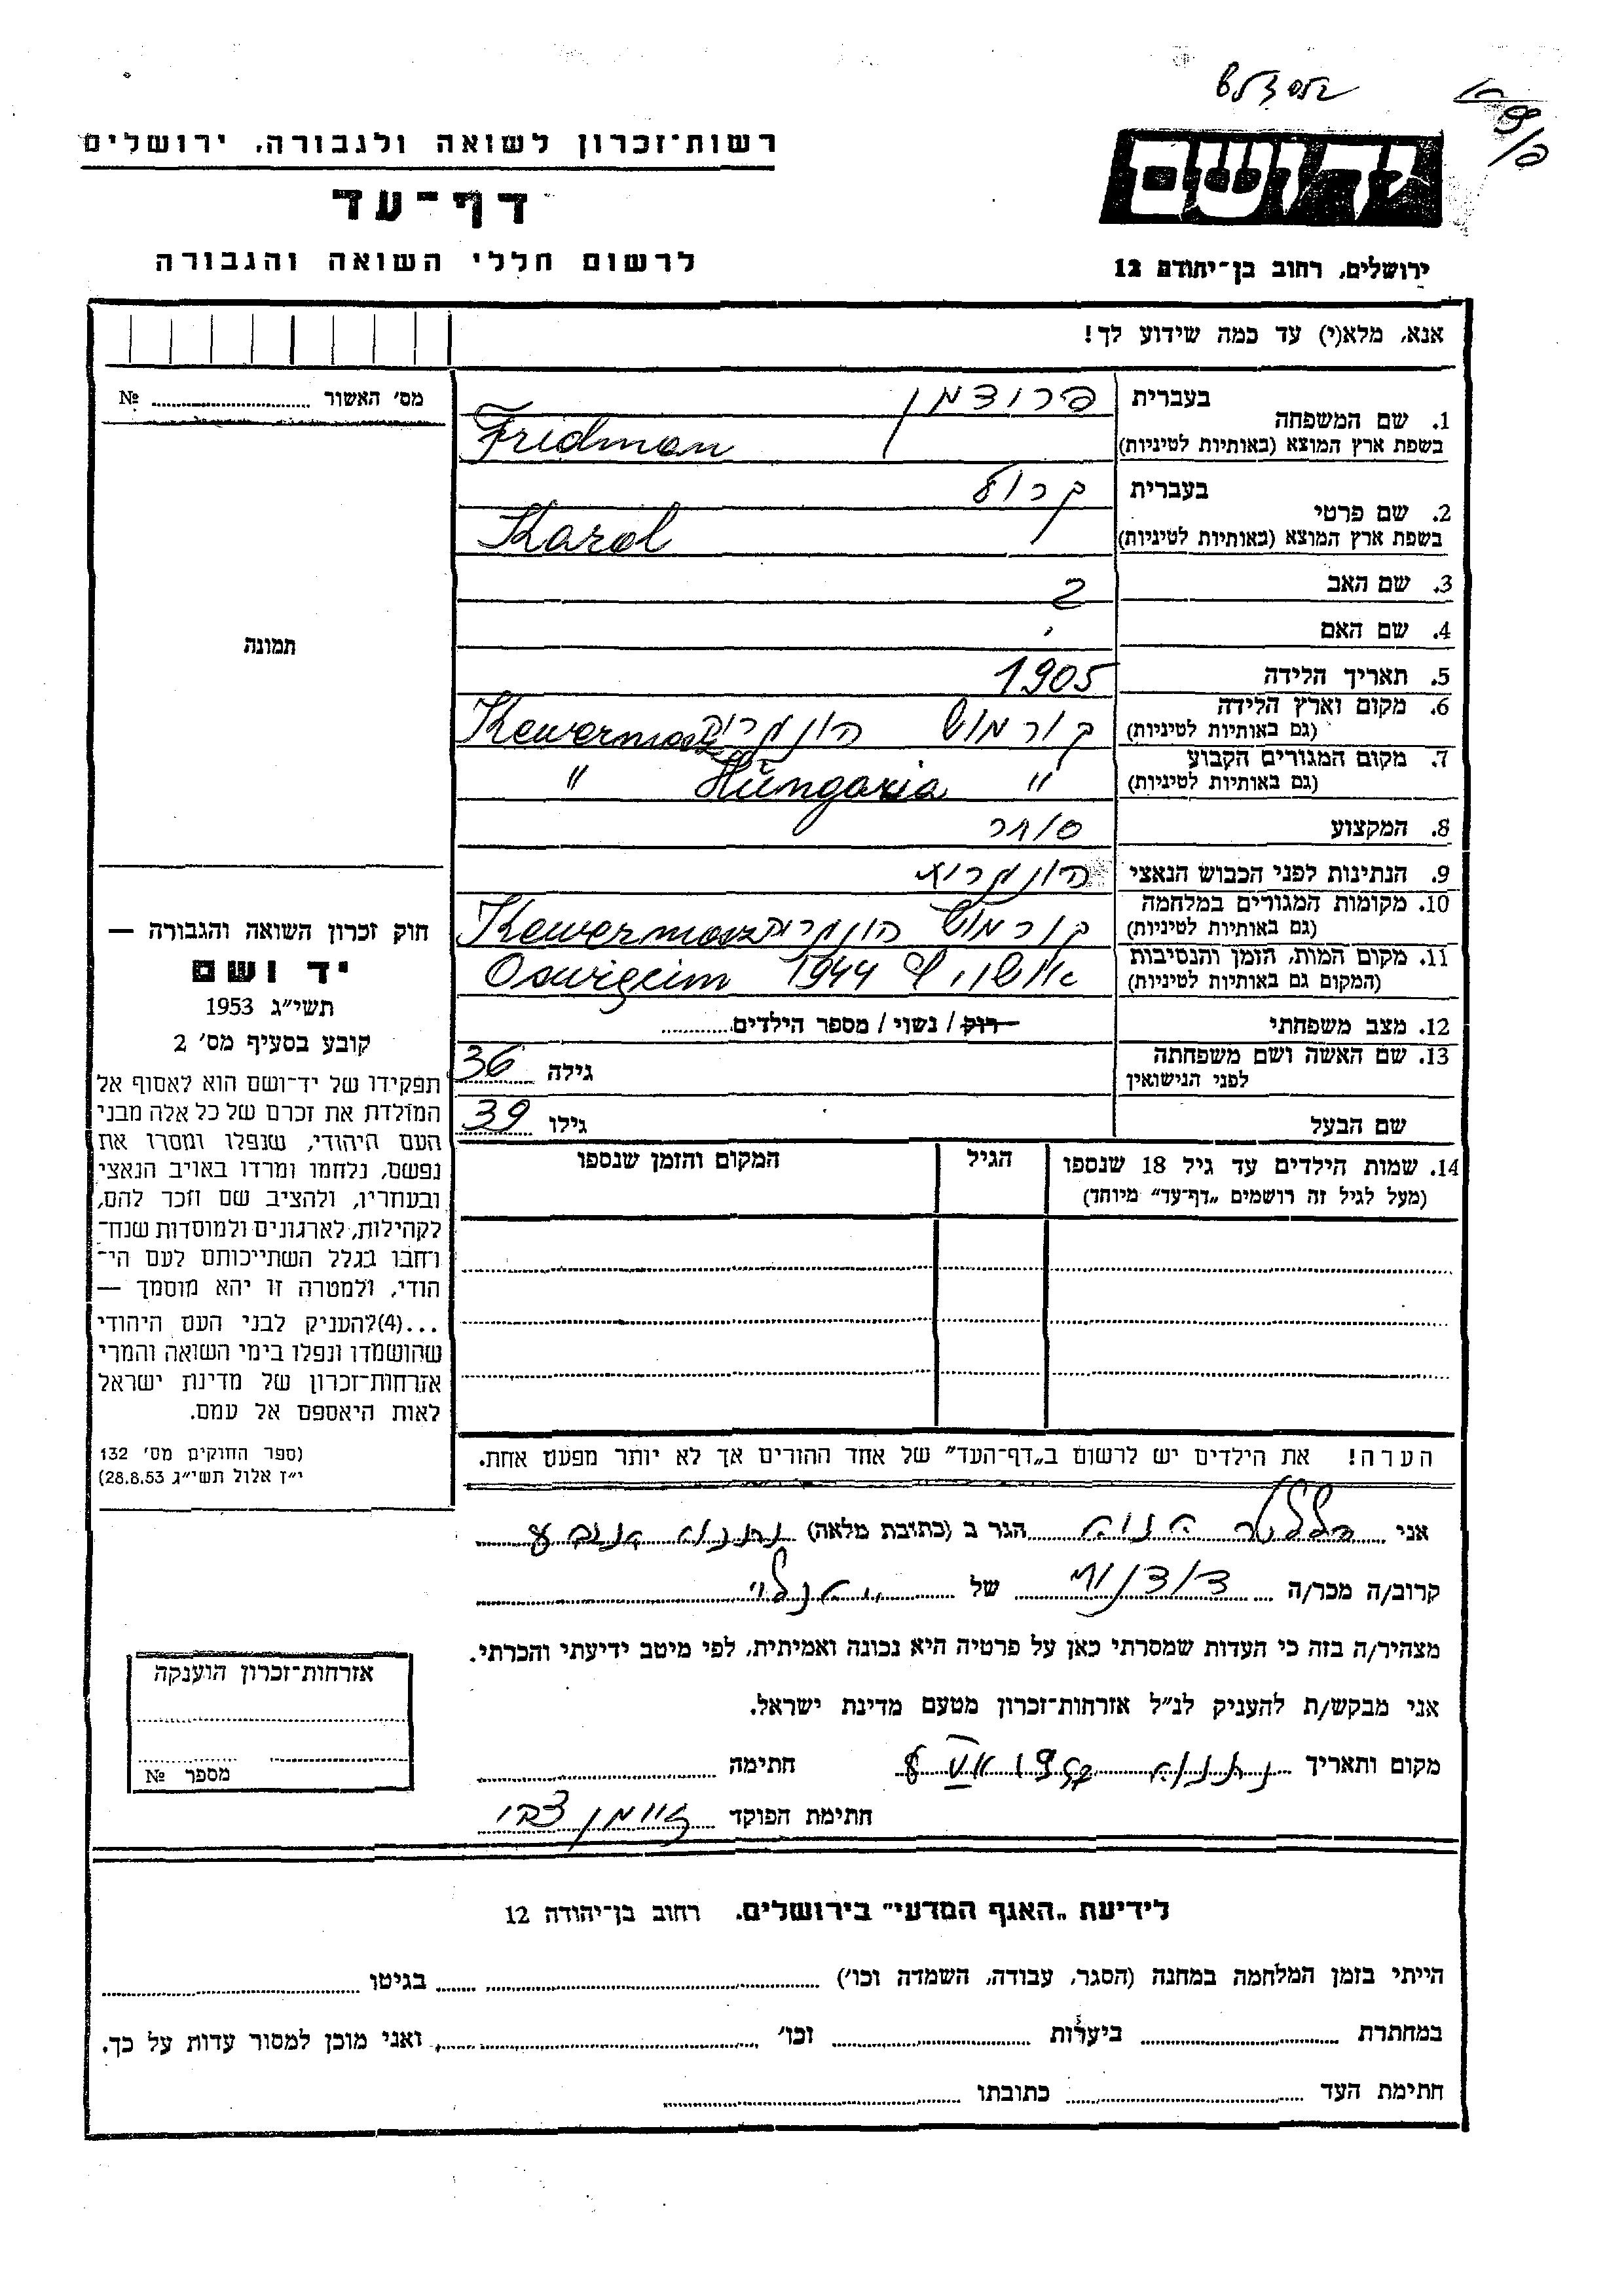 רשות־זכרון לשואה ולגבורה, ירושלים
דף־עד
לרשום חללי השואה והגבורה
יד ושם
ירושלים, רחוב בן־יהודה 12
אנא, מלא(י) עד כמה שידוע לך!
מס׳ האשור № 
1. שם המשפחה
בעברית פרידמן
בשפת ארץ המוצא (באותיות לטיניות) Fridman
2. שם פרטי
בעברית קרול
בשפת ארץ המוצא (באותיות לטיניות) Karol
3. שם האב
4. שם האם
5. תאריך הלידה 1905
6. מקום וארץ הלידה
(גם באותיות לטיניות) הונגריה
7. מקום המגורים הקבוע
(גם באותיות לטיניות) " Hungaria "
8. המקצוע סוחר
9. הנתינות לפני הכבוש הנאצי
10. מקומות המגורים במלחמה
(גם באותיות לטיניות) הונגריה
11. מקום המות, הזמן והנסיבות
(המקום גם באותיות לטיניות) 1944
12. מצב משפחתי רוק / נשוי / מספר הילדים
13. שם האשה ושם משפחתה
לפני הנישואין
גילה 36
שם הבעל גילו 39
14. שמות הילדים עד גיל 18 שנספו
(מעל לגיל זה רושמים „דף־עד” מיוחד)
הגיל
המקום והזמן שנספו
הערה! את הילדים יש לרשום ב„דף־העד” של אחד ההורים אך לא יותר מפעם אחת.
תמונה
חוק זכרון השואה והגבורה —
יד ושם
תשי״ג 1953
קובע בסעיף מס׳ 2
תפקידו של יד־ושם הוא לאסוף אל
המולדת את זכרם של כל אלה מבני
העם היהודי, שנפלו ומסרו את
נפשם, נלחמו ומרדו באויב הנאצי
ובעוזריו, ולהציב שם וזכר להם,
לקהילות, לארגונים ולמוסדות שנח־
רחבו בגלל השתייכותם לעם הי־
הודי, ולמטרה זו יהא מוסמך —
...(4)להעניק לבני העם היהודי
שהושמדו ונפלו בימי השואה והמרי
אזרחות־זכרון של מדינת ישראל
לאות היאספם אל עמם.
(ספר החוקים מס׳ 132
י״ז אלול תשי״ג 28.8.53)
אני הגר ב (כתובת מלאה) נתניה
קרוב/ה מכר/ה של
מצהיר/ה בזה כי העדות שמסרתי כאן על פרטיה היא נכונה ואמיתית, לפי מיטב ידיעתי והכרתי.
אני מבקש/ת להעניק לנ״ל אזרחות־זכרון מטעם מדינת ישראל.
מקום ותאריך נתניה חתימה
חתימת הפוקד
אזרחות־זכרון הוענקה
מספר №
לידיעת „האגף המדעי” בירושלים, רחוב בן־יהודה 12
הייתי בזמן המלחמה במחנה (הסגר, עבודה, השמדה וכו׳) בגיטו
במחתרת ביערות וכו׳ ואני מוכן למסור עדות על כך.
חתימת העד כתובתו